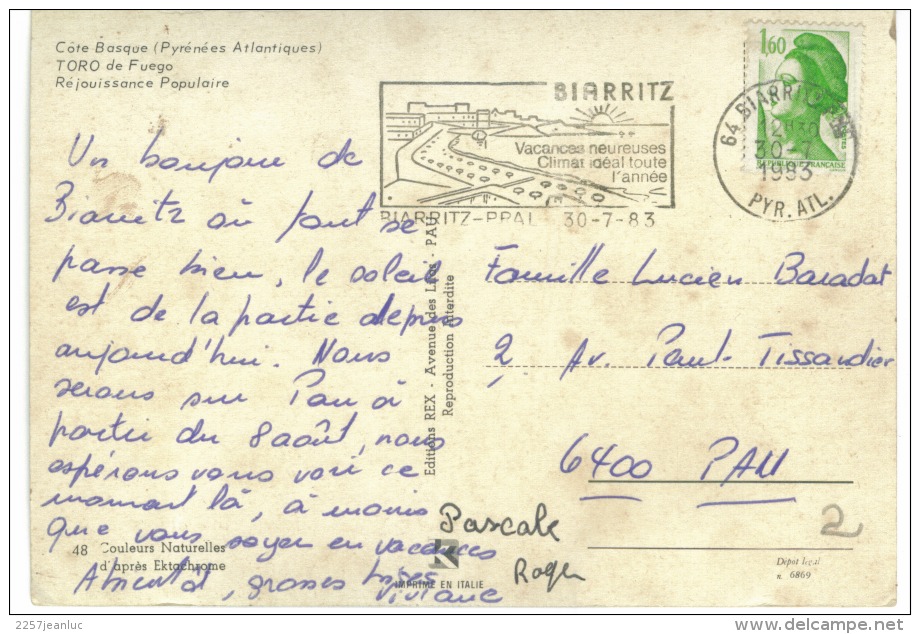 Côte Basque (Pyrénées Atlantiques)
TORO de Fuego
Réjouissance Populaire
1,60
RÉPUBLIQUE FRANÇAISE
64 BIARRITZ
12H30
30-7
1983
PYR. ATL.
BIARRITZ
Vacances heureuses
Climat idéal toute
l'année
BIARRITZ-PPAL 30-7-83
Un bonjour de
Biarritz où tout se
passe bien, le soleil
est de la partie depuis
aujourd'hui. Nous
serons sur Pau à
partir du 8 août, nous
espérons vous voir ce
moment là, à moins
que vous soyez en vacances
A bientôt, grosses bises
Viviane
Pascale
Roger
Famille Lucien Baradat
2, Av. Paul Tissandier
6400 PAU
2
Editions REX - Avenue des Lilas - PAU
Reproduction Interdite
48 Couleurs Naturelles
d'après Ektachrome
IMPRIMÉ EN ITALIE
Dépôt légal
n. 6869
2257jeanluc
www.delcampe.net